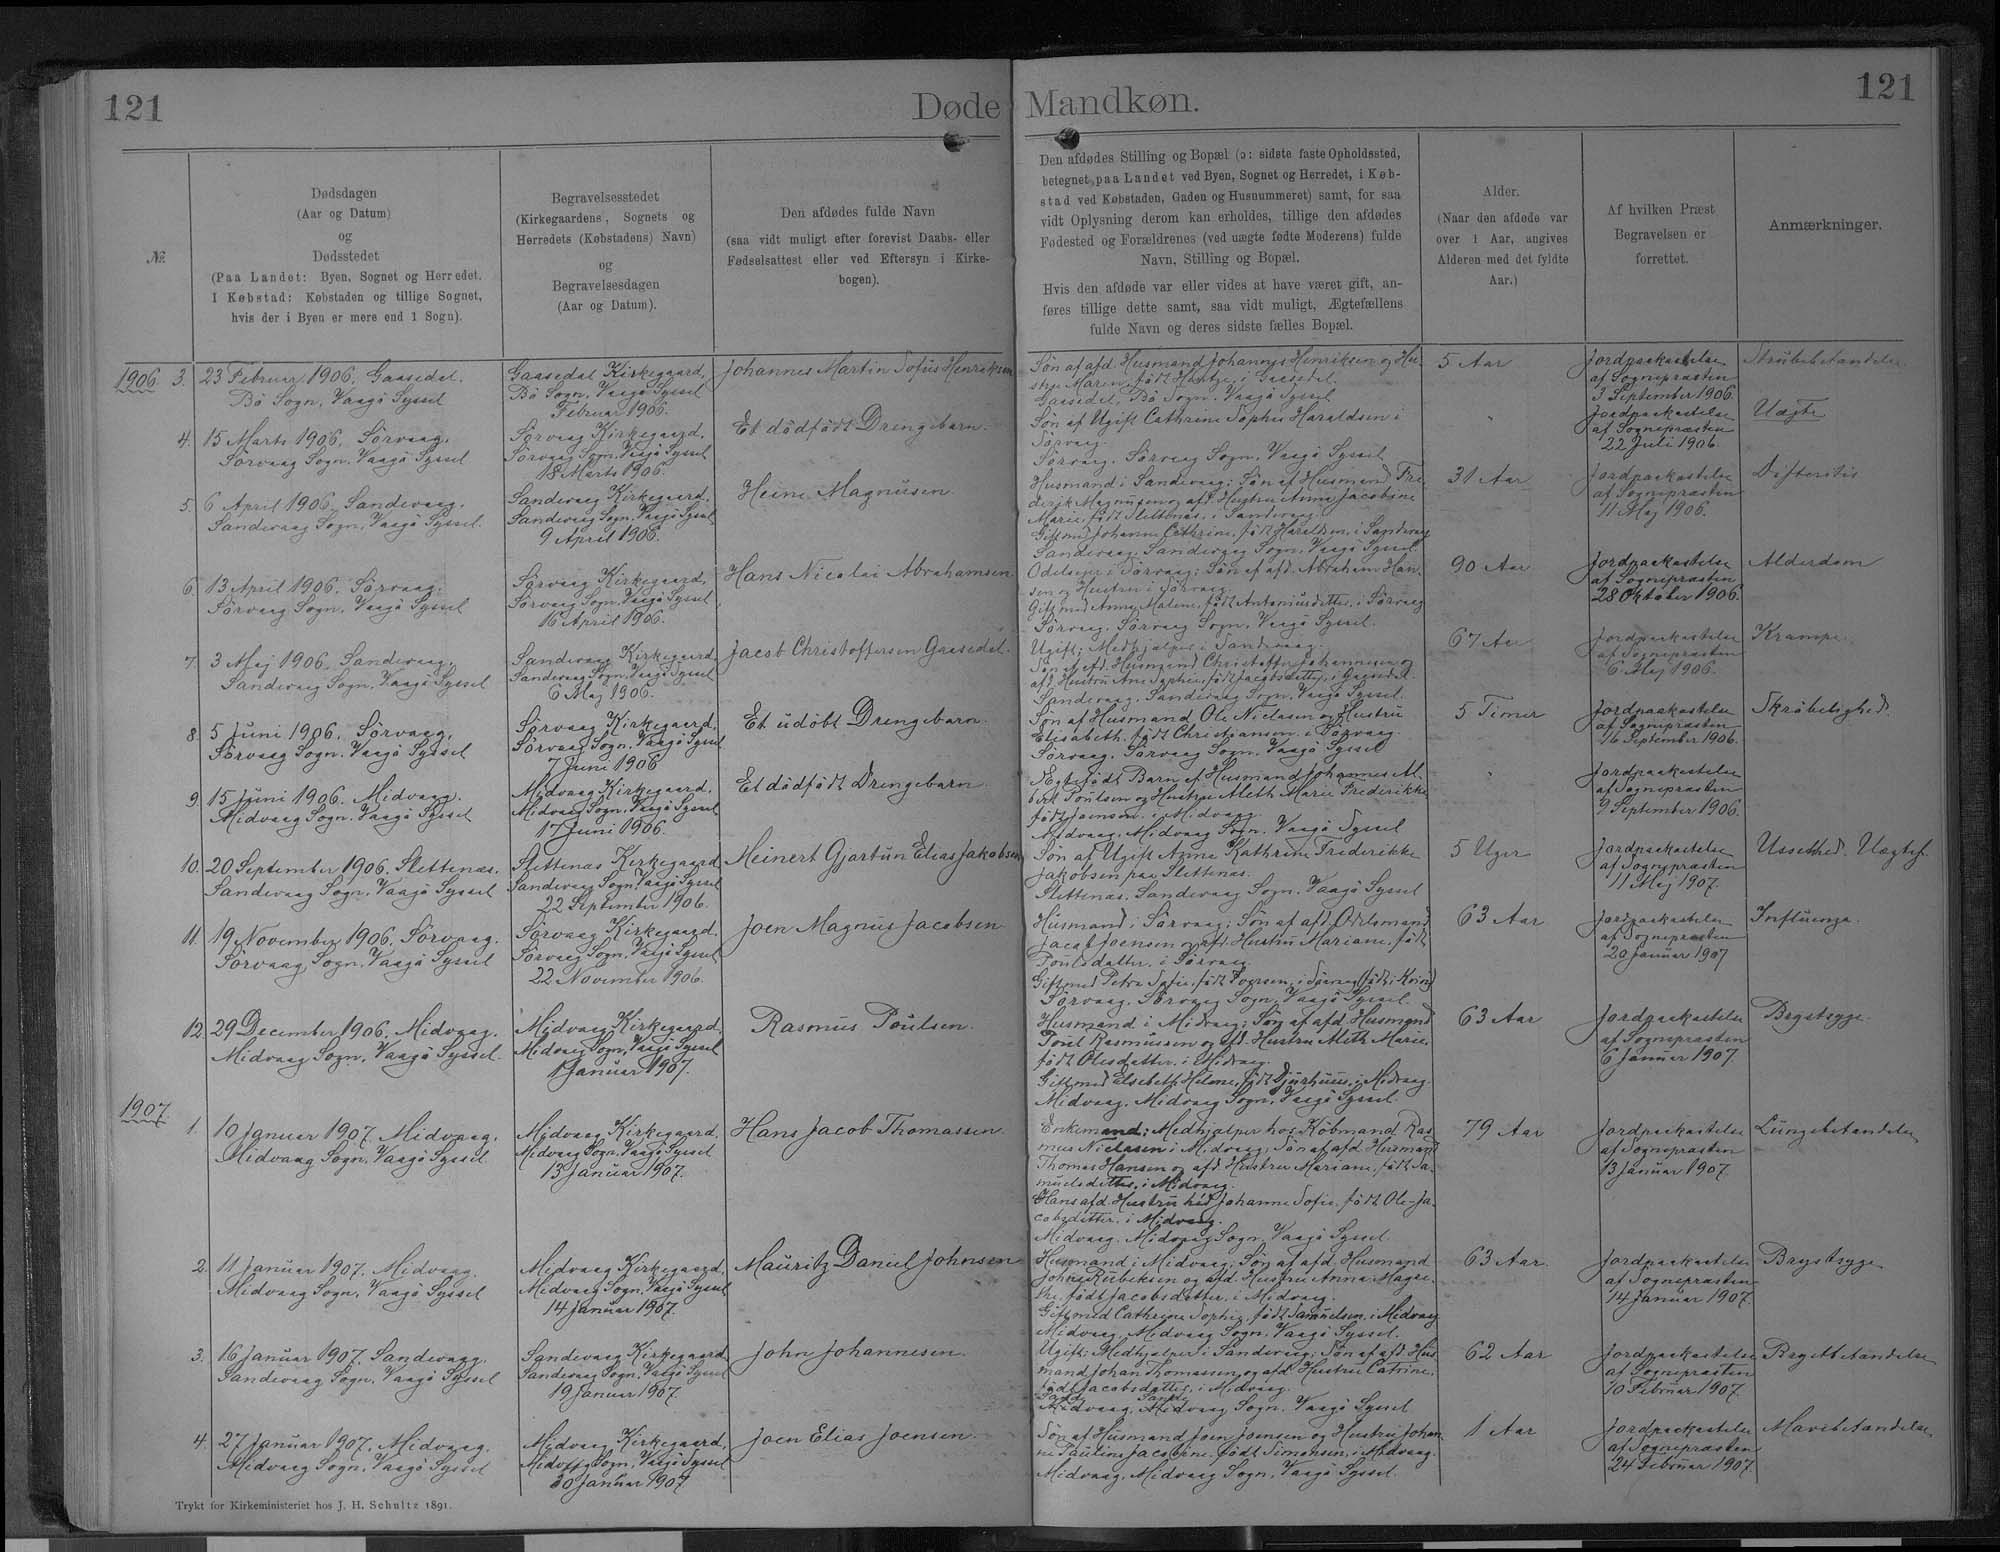 121
Døde
Mandkøn.
121
№
Dødsdagen
(Aar og Datum)
og
Dødsstedet
(Paa Landet: Byen, Sognet og Herredet.
I Købstad: Købstaden og tillige Sognet,
hvis der i Byen er mere end 1 Sogn).
Begravelsesstedet
(Kirkegaardens, Sognets og
Herredets (Købstadens) Navn)
og
Begravelsesdagen
(Aar og Datum).
Den afdødes fulde Navn
(saa vidt muligt efter forevist Daabs- eller
Fødselsattest eller ved Eftersyn i Kirke-
bogen).
Den afdødes Stilling og Bopæl (ɔ: sidste faste Opholdssted,
betegnet paa Landet ved Byen, Sognet og Herredet, i Køb-
stad ved Købstaden, Gaden og Husnummeret) samt, for saa
vidt Oplysning derom kan erholdes, tillige den afdødes
Fødested og Forældrenes (ved uægte fødte Moderens) fulde
Navn, Stilling og Bopæl.
Hvis den afdøde var eller vides at have været gift, an-
føres tillige dette samt, saa vidt muligt, Ægtefællens
fulde Navn og deres sidste fælles Bopæl.
Alder.
(Naar den afdøde var
over 1 Aar, angives
Alderen med det fyldte
Aar.)
Af hvilken Præst
Begravelsen er
forrettet.
Anmærkninger.
1906. 3. 23 Februar 1906. Gaasedal.
Bö Sogn. Vaagö Syssel
Gaasedal Kirkegaard,
Bö Sogn. Vaagö Syssel
Februar 1906.
Johannes Martin Sofus Henriksen
Søn af afd. Husmand Johannes Henriksen og Hu-
stru Maren, født i Gaasedal.
Gaasedal, Bö Sogn. Vaagö Syssel
5 Aar
Jordpaakastelse
af Sognepræsten
3 September 1906.
Strubebetændelse
4. 15 Marts 1906. Sörvaag.
Sörvaag Sogn. Vaagö Syssel
Sörvaag Kirkegaard.
Sörvaag Sogn. Vaagö Syssel
18 Marts 1906.
Et dödfödt Drengebarn.
Søn af Ugift Cathrine Sophie Haraldsen i
Sörvaag.
Sörvaag. Sörvaag Sogn. Vaagö Syssel
"
Jordpaakastelse
af Sognepræsten
22 Juli 1906.
Uægte
5. 6 April 1906. Sandevaag.
Sandevaag Sogn. Vaagö Syssel.
Sandevaag Kirkegaard.
Sandevaag Sogn. Vaagö Syssel
9 April 1906.
Heine Magnusen
Husmand i Sandevaag; Søn af Husmand Fre-
derik Magnusen og afd. Hustru Anna Jacobine
Marie, født Slettenæs, i Sandevaag.
Gift med Johanne Cathrine, født Haraldsen, i Sandevaag
Sandevaag. Sandevaag Sogn. Vaagö Syssel.
31 Aar
Jordpaakastelse
af Sognepræsten
11 Maj 1906.
Difteritis
6. 13 April 1906. Sörvaag.
Sörvaag Sogn. Vaagö Syssel
Sörvaag Kirkegaard,
Sörvaag Sogn. Vaagö Syssel
16 April 1906.
Hans Nicolai Abrahamsen
Odelsejer i Sörvaag; Søn af afd. Abraham Han-
sen og Hustru i Sörvaag.
Gift med Anna Malene, født Antoniusdatter, i Sörvaag
Sörvaag. Sörvaag Sogn. Vaagö Syssel.
90 Aar
Jordpaakastelse
af Sognepræsten
28 Oktober 1906.
Alderdom
7. 3 Maj 1906. Sandevaag.
Sandevaag Sogn. Vaagö Syssel
Sandevaag Kirkegaard
Sandevaag Sogn. Vaagö Syssel
6 Maj 1906.
Jacob Christoffersen Gaasedal.
Ugift; Medhjælper i Sandevaag.
Søn af afd. Husmand Christoffer Johannesen og
afd. Hustru Ane Sophie, født Jacobsdatter, i Gaasedal.
Sandevaag. Sandevaag Sogn. Vaagö Syssel.
67 Aar
Jordpaakastelse
af Sognepræsten
6 Maj 1906.
Krampe.
8. 5 Juni 1906. Sörvaag.
Sörvaag Sogn. Vaagö Syssel
Sörvaag Kirkegaard.
Sörvaag Sogn. Vaagö Syssel
7 Juni 1906
Et udöbt Drengebarn.
Søn af Husmand Ole Niclasen og Hustru
Elisabeth, født Christiansen i Sörvaag.
Sörvaag. Sörvaag Sogn. Vaagö Syssel
5 Timer
Jordpaakastelse
af Sognepræsten
16 September 1906.
Skröbelighed.
9. 15 Juni 1906. Midvaag.
Midvaag Sogn. Vaagö Syssel
Midvaag Kirkegaard.
Midvaag Sogn. Vaagö Syssel
17 Juni 1906.
Et dödfödt Drengebarn
Ægtefødt Barn af Husmand Johannes Al-
bert Poulsen og Hustru Aleth Marie Frederikke
født Joensen. i Midvaag.
Midvaag. Midvaag Sogn. Vaagö Syssel
"
Jordpaakastelse
af Sognepræsten
9 September 1906.
10. 20 September 1906. Slettenæs.
Sandevaag Sogn. Vaagö Syssel
Slettenæs Kirkegaard
Sandevaag Sogn. Vaagö Syssel
22 September 1906.
Meinert Gjartun Elias Jakobsen
Søn af Ugift Anne Kathrine Frederikke
Jakobsen paa Slettenæs.
Slettenæs. Sandevaag Sogn. Vaagö Syssel
5 Uger
Jordpaakastelse
af Sognepræsten
11 Maj 1907.
Usselhed. Uægtef.
11. 19 November 1906. Sörvaag.
Sörvaag Sogn. Vaagö Syssel
Sörvaag Kirkegaard.
Sörvaag Sogn. Vaagö Syssel
22 November 1906.
Joen Magnus Jacobsen
Husmand i Sörvaag; Søn af afd. Odelsmand
Jacob Joensen og afd. Hustru Mariane, født
Poulsdatter. i Sörvaag.
Gift med Petra Sofie, født i Sörvaag
Sörvaag. Sörvaag Sogn. Vaagö Syssel.
63 Aar
Jordpaakastelse
af Sognepræsten
20 Januar 1907
Influenza.
12. 29 December 1906. Midvaag.
Midvaag Sogn. Vaagö Syssel.
Midvaag Kirkegaard
Midvaag Sogn. Vaagö Syssel
1 Januar 1907.
Rasmus Poulsen.
Husmand i Midvaag; Søn af afd. Husmand
Poul Rasmussen og afd. Hustru Aleth Marie,
født Olesdatter. i Midvaag.
Gift med Elsebeth Helene, født Djurhuus, i Midvaag.
Midvaag. Midvaag Sogn. Vaagö Syssel.
63 Aar
Jordpaakastelse
af Sognepræsten
6 Januar 1907.
Brystsyge.
1907.
1. 10 Januar 1907. Midvaag.
Midvaag Sogn. Vaagö Syssel
Midvaag Kirkegaard.
Midvaag Sogn. Vaagö Syssel
13 Januar 1907.
Hans Jacob Thomassen
Enkemand; Medhjælper hos Købmand Ras-
mus Niclasen i Midvaag; Søn af afd. Husmand
Thomas Hansen og afd. Hustru Mariane, født Sa-
muelsdatter, i Midvaag.
Hans afd. Hustru hed Johanne Sofie, født Ole-Ja-
cobsdatter. i Midvaag.
Midvaag. Midvaag Sogn. Vaagö Syssel
79 Aar
Jordpaakastelse
af Sognepræsten
13 Januar 1907.
Lungebetændelse
2. 11 Januar 1907. Midvaag.
Midvaag Sogn. Vaagö Syssel
Midvaag Kirkegaard.
Midvaag Sogn. Vaagö Syssel
14 Januar 1907.
Mauritz Daniel Johnsen
Husmand i Midvaag; Søn af afd. Husmand
John Rubeksen og afd. Hustru Anna
født Jacobsdatter, i Midvaag.
Gift med Cathrine Sophie, født Samuelsen, i Midvaag
Midvaag. Midvaag Sogn. Vaagö Syssel.
63 Aar.
Jordpaakastelse
af Sognepræsten
14 Januar 1907.
Brystsyge
3. 16 Januar 1907. Sandevaag.
Sandevaag Sogn. Vaagö Syssel
Sandevaag Kirkegaard
Sandevaag Sogn. Vaagö Syssel
19 Januar 1907.
John Johannesen.
Ugift; Medhjælper i Sandevaag; Søn af afd. Hus-
mand Johan Thomassen og afd. Hustru Catrine,
født Jacobsdatter, i Midvaag.
Sande Sande
Midvaag, Midvaag Sogn. Vaagö Syssel
62 Aar
Jordpaakastelse
af Sognepræsten
10 Februar 1907.
Brystbetændelse
4. 27 Januar 1907. Midvaag.
Midvaag Sogn. Vaagö Syssel
Midvaag Kirkegaard.
Midvaag Sogn. Vaagö Syssel
30 Januar 1907
Joen Elias Joensen.
Søn af Husmand Joen Joensen og Hustru Johan-
ne Pauline Jacobine, født Simonsen, i Midvaag.
Midvaag. Midvaag Sogn. Vaagö Syssel.
1 Aar
Jordpaakastelse
af Sognepræsten
24 Februar 1907.
Mavebetændelse
Trykt for Kirkeministeriet hos J. H. Schultz 1891.